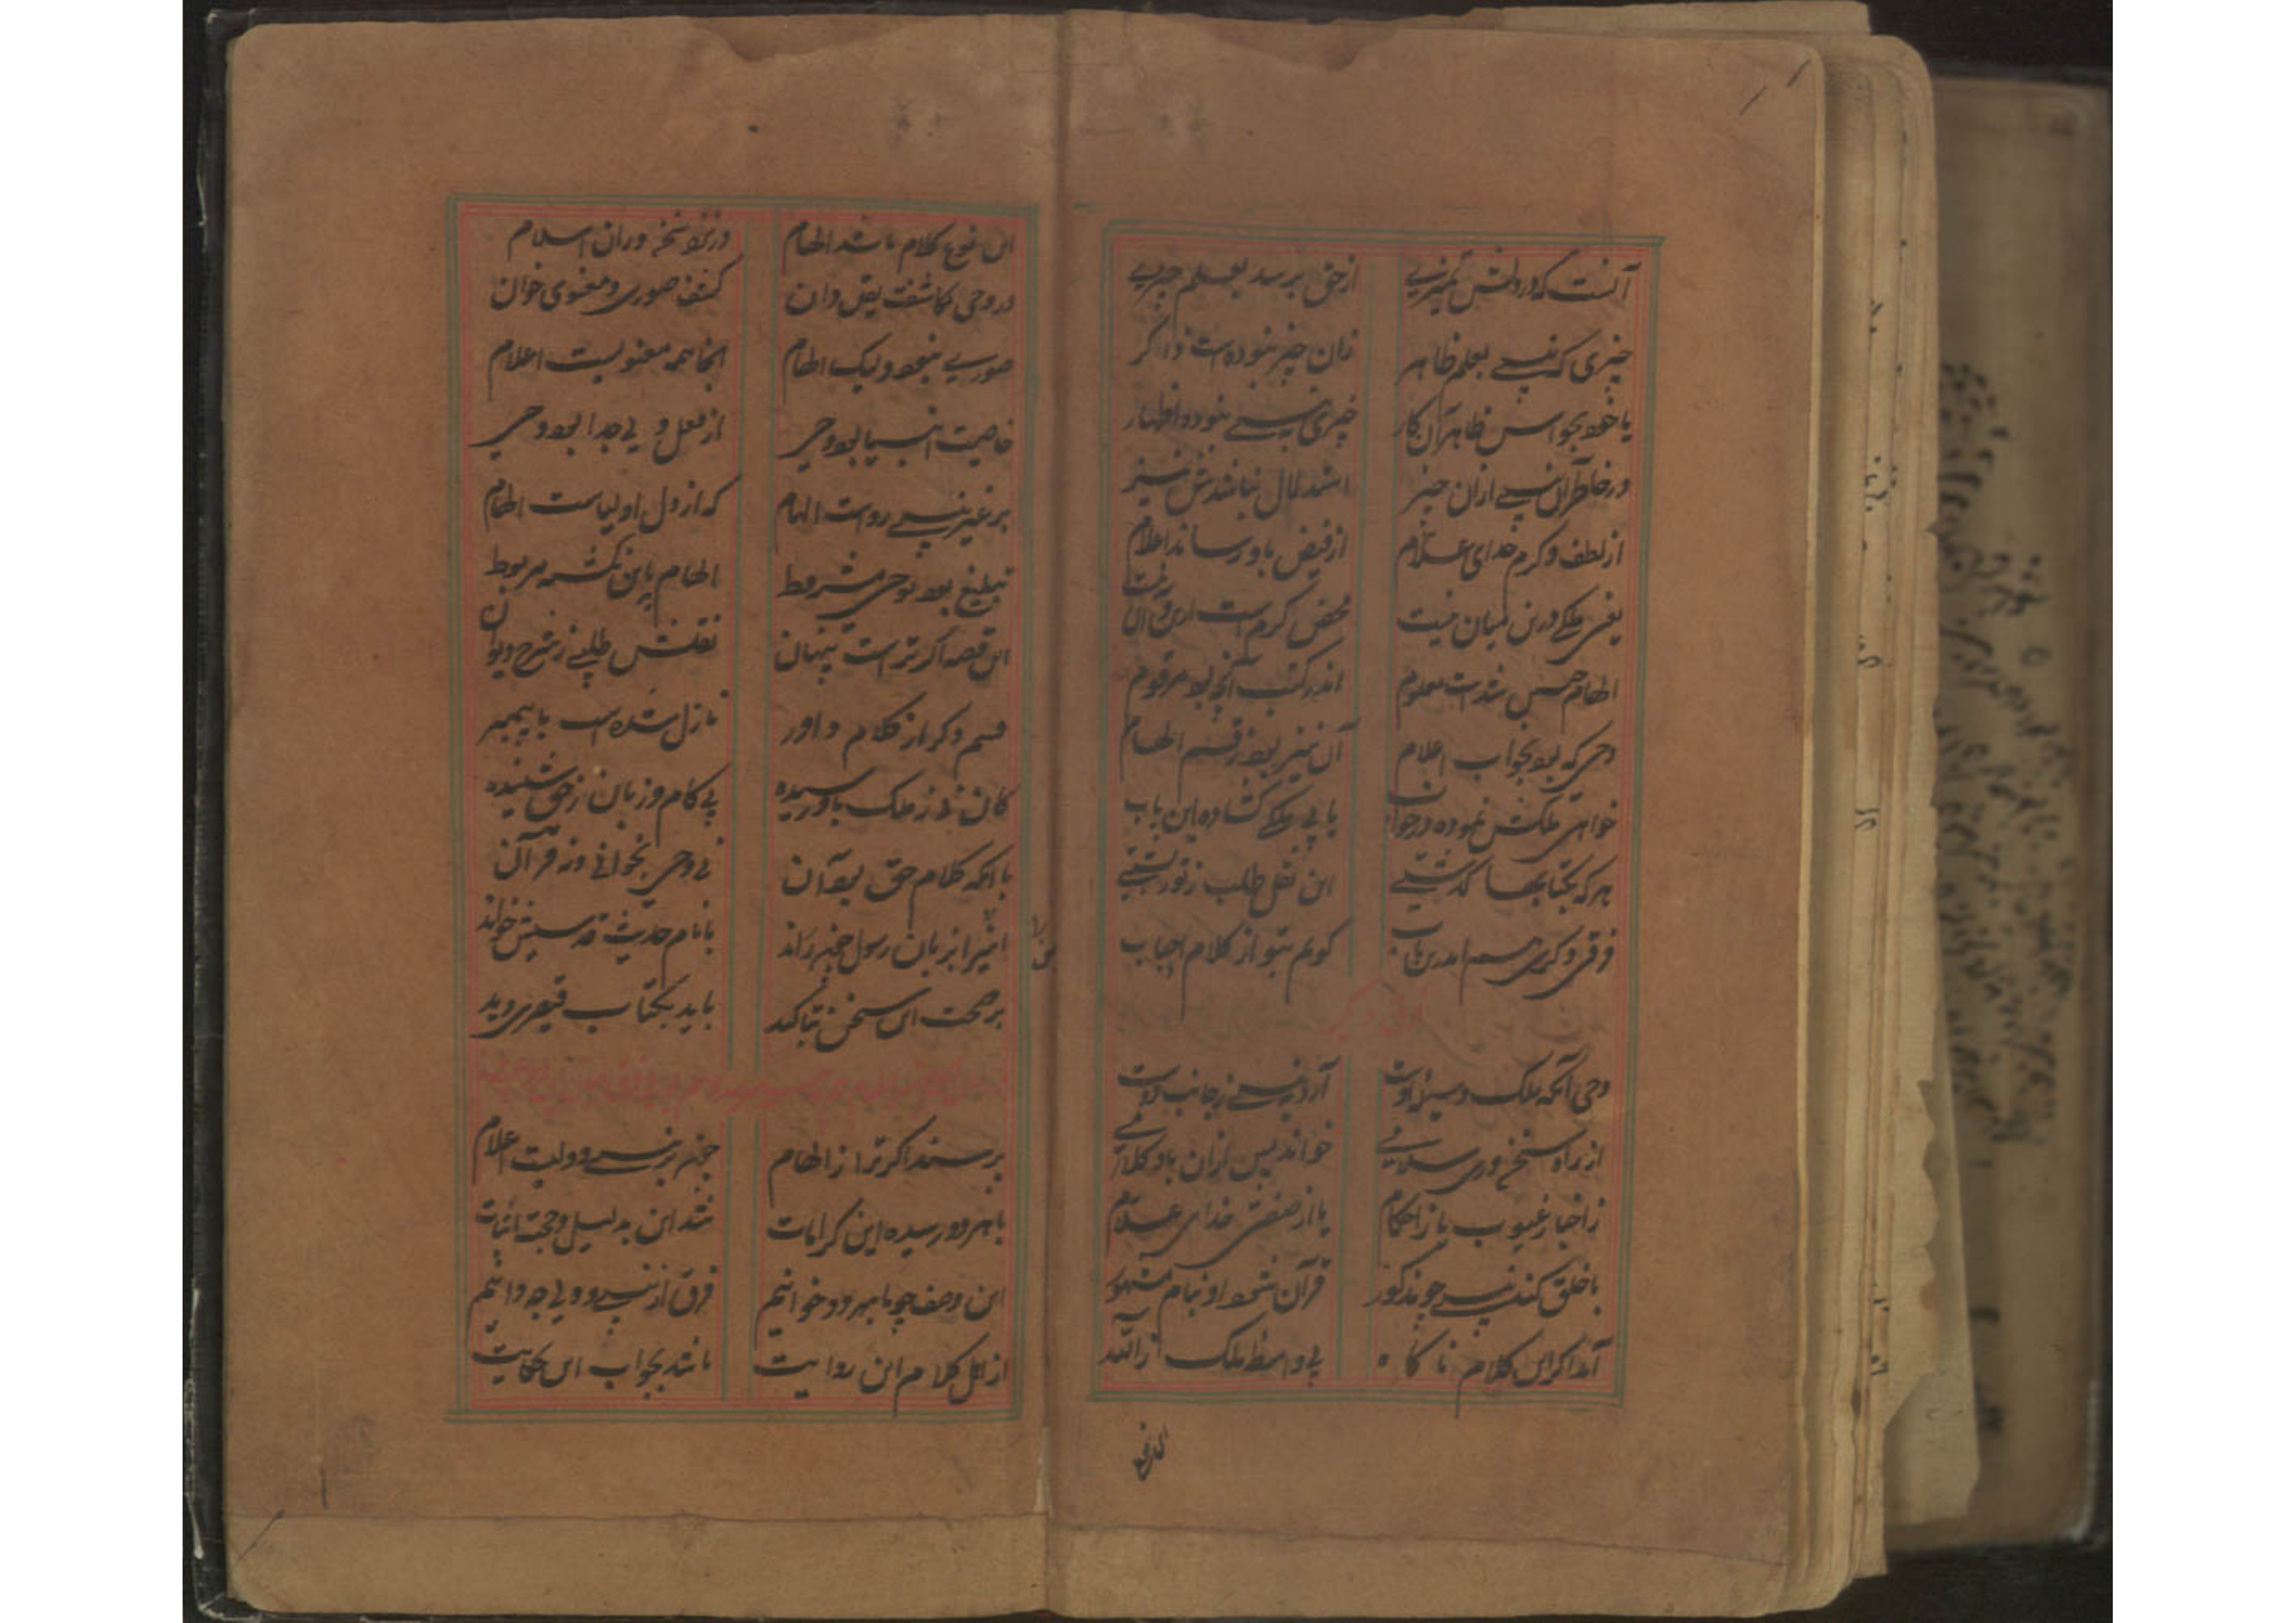 آنست که در دلش از حق برسد بعلم چیزی
چیزی که نبی بعلم ظاهر زان چیز نبوده است ذاکر
یا خود بحواس ظاهر آن کار چیزی نبی نبوده اظهار
در خاطر آن نبی ازان چیز استدلال نباشدش نیز
از لطف و کرم خدای علام از فیض باو رساند اعلام
یعنی ملکی درین میان نیست محض کرم است
الهام حسن شد است معلوم اندر کتب آنچه بود مرقوم
وحی که بود بخواب اعلام آن نیز بود ز قسم الهام
خواهی ملکش نموده در خواب یا بی ملکی کشاده این باب
هر که بکتابها گذشتی این نقل طلب ز
فرق دگری هم اندرین باب گویم بتو از کلام احباب
فرق دیگر
وحی آنکه ملک وسیله اوست آرد به نبی ز جانب دوست
از راه سخنوری سلامی خواند پس ازان باو کلامی
ز اخبار غیوب یا ز احکام یا از صفت خدای علام
با خلق کند نبی چو مذکور قرآن شود او بنام مشهور
آمد اگر این کلام ناگاه بی واسطه ملک ز الله
این نوع کلام باشد الهام در نزد سخنوران اسلام
در وحی مکاشفت یقین دان کشف صوری و معنوی خوان
صوری نبود ولیک الهام آنجا همه معنویست اعلام
خاصیت انبیا بود وحی از فعل ولی جدا بود وحی
بر غیر نبی رواست الهام که از دل اولیاست الهام
تبلیغ بود بوحی مشروط الهام باین نگشته مربوط
این قصه اگر تراست پنهان نقلش طلبی ز شرح دیوان
قسم دگر از کلام داور نازل شده است با پیمبر
کان نی ز ملک باو رسیده بی کام و زبان ز حق شنیده
با آنکه کلام حق بود آن نی وحی بخوانی و نه قرآن
آنرا بزبان رسول چون راند با نام حدیث قدسیش خواند
بر صحت این سخن بتاکید باید بکتاب قیصری دید
پرسند اگر ترا ز الهام چون بر نبی و ولیست اعلام
با هر دو رسیده این کرامات شد این بدلیل و حجت اثبات
این وصف چو با هر دو خوانیم فرق از نبی و ولی چه دانیم
از اهل کلام این روایت باشد بجواب این حکایت